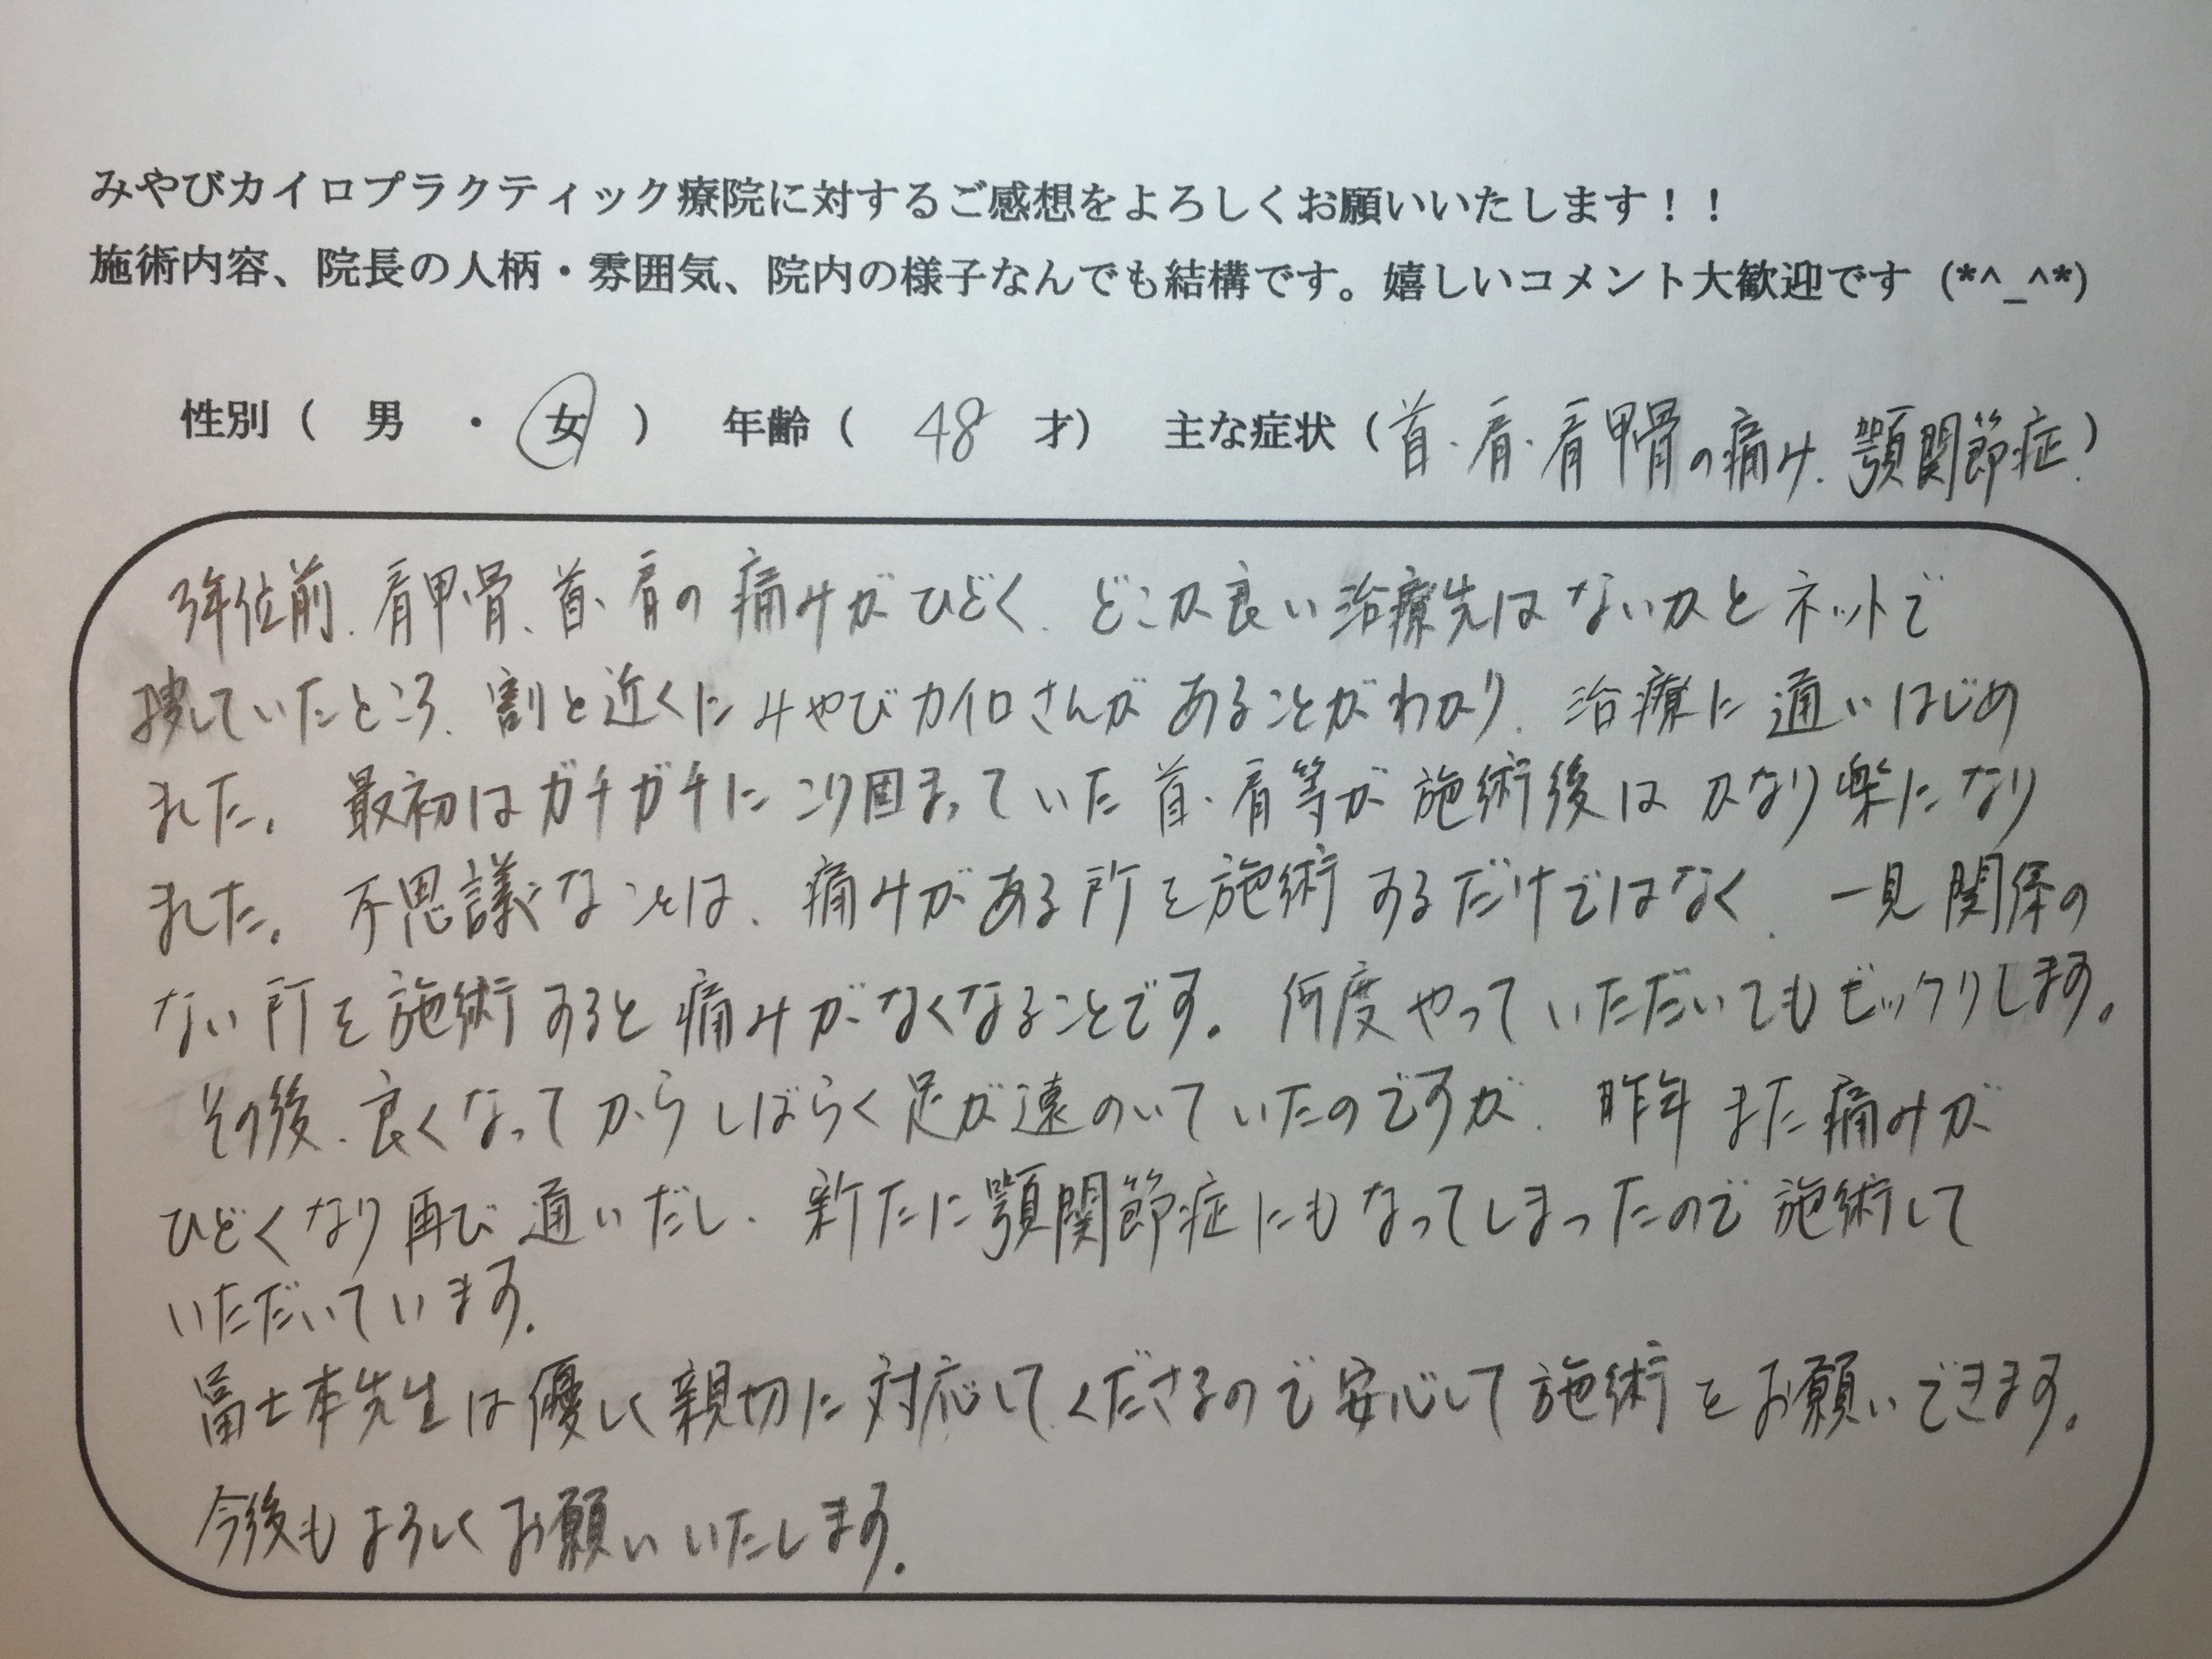 みやびカイロプラクティック療院に対するご感想をよろしくお願いいたします！！
施術内容、院長の人柄・雰囲気、院内の様子なんでも結構です。嬉しいコメント大歓迎です (*^_^*)
性別（ 男 ・ 女 ） 年齢（ 48 才） 主な症状（首・肩・肩甲骨の痛み、顎関節症）
3年位前、肩甲骨、首、肩の痛みがひどく、どこか良い治療先はないかとネットで
捜していたところ、割と近くにみやびカイロさんがあることがわかり、治療に通いはじめ
ました。最初はガチガチにこり固まっていた首、肩等が施術後はかなり楽になり
ました。不思議なことは、痛みがある所を施術するだけではなく、一見関係の
ない所を施術すると痛みがなくなることです。何度やっていただいてもビックリします。
その後、良くなってからしばらく足が遠のいていたのですが、昨年また痛みが
ひどくなり再び通いだし、新たに顎関節症にもなってしまったので施術して
いただいています。
冨士本先生は優しく親切に対応してくださるので安心して施術をお願いできます。
今後もよろしくお願いいたします。